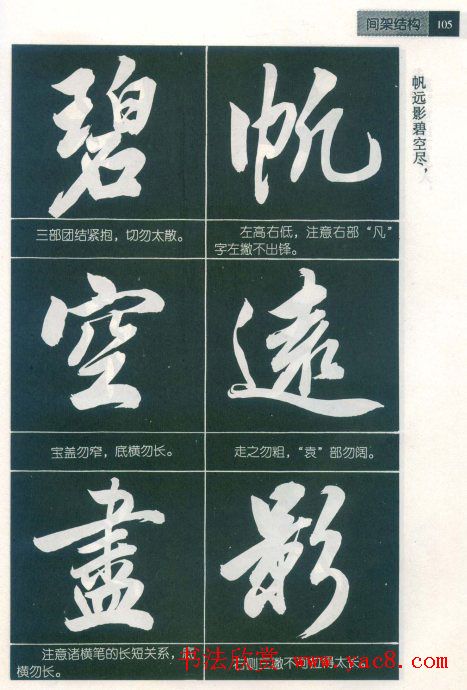 间架结构 105
帆远影碧空尽，
帆
左高右低，注意右部“凡”
字左撇不出锋。
遠
走之勿粗，“袁”部勿阔。
影
右侧三撇不可拉得太长。
碧
三部团结紧抱，切勿太散。
空
宝盖勿窄，底横勿长。
盡
注意诸横笔的长短关系，底
横勿长。
书法欣赏 www.yac8.com